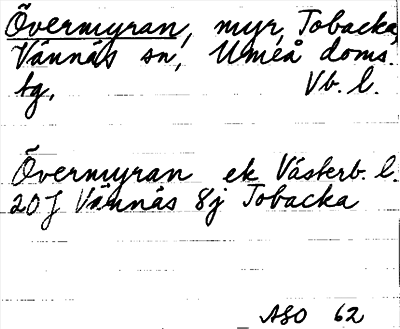 Övermyran, myr, Tobacka,
Vännäs sn, Umeå doms.
tg. Vb. l.
Övermyran ek Västerb. l.
20J Vännäs 8j Tobacka
ASO 62